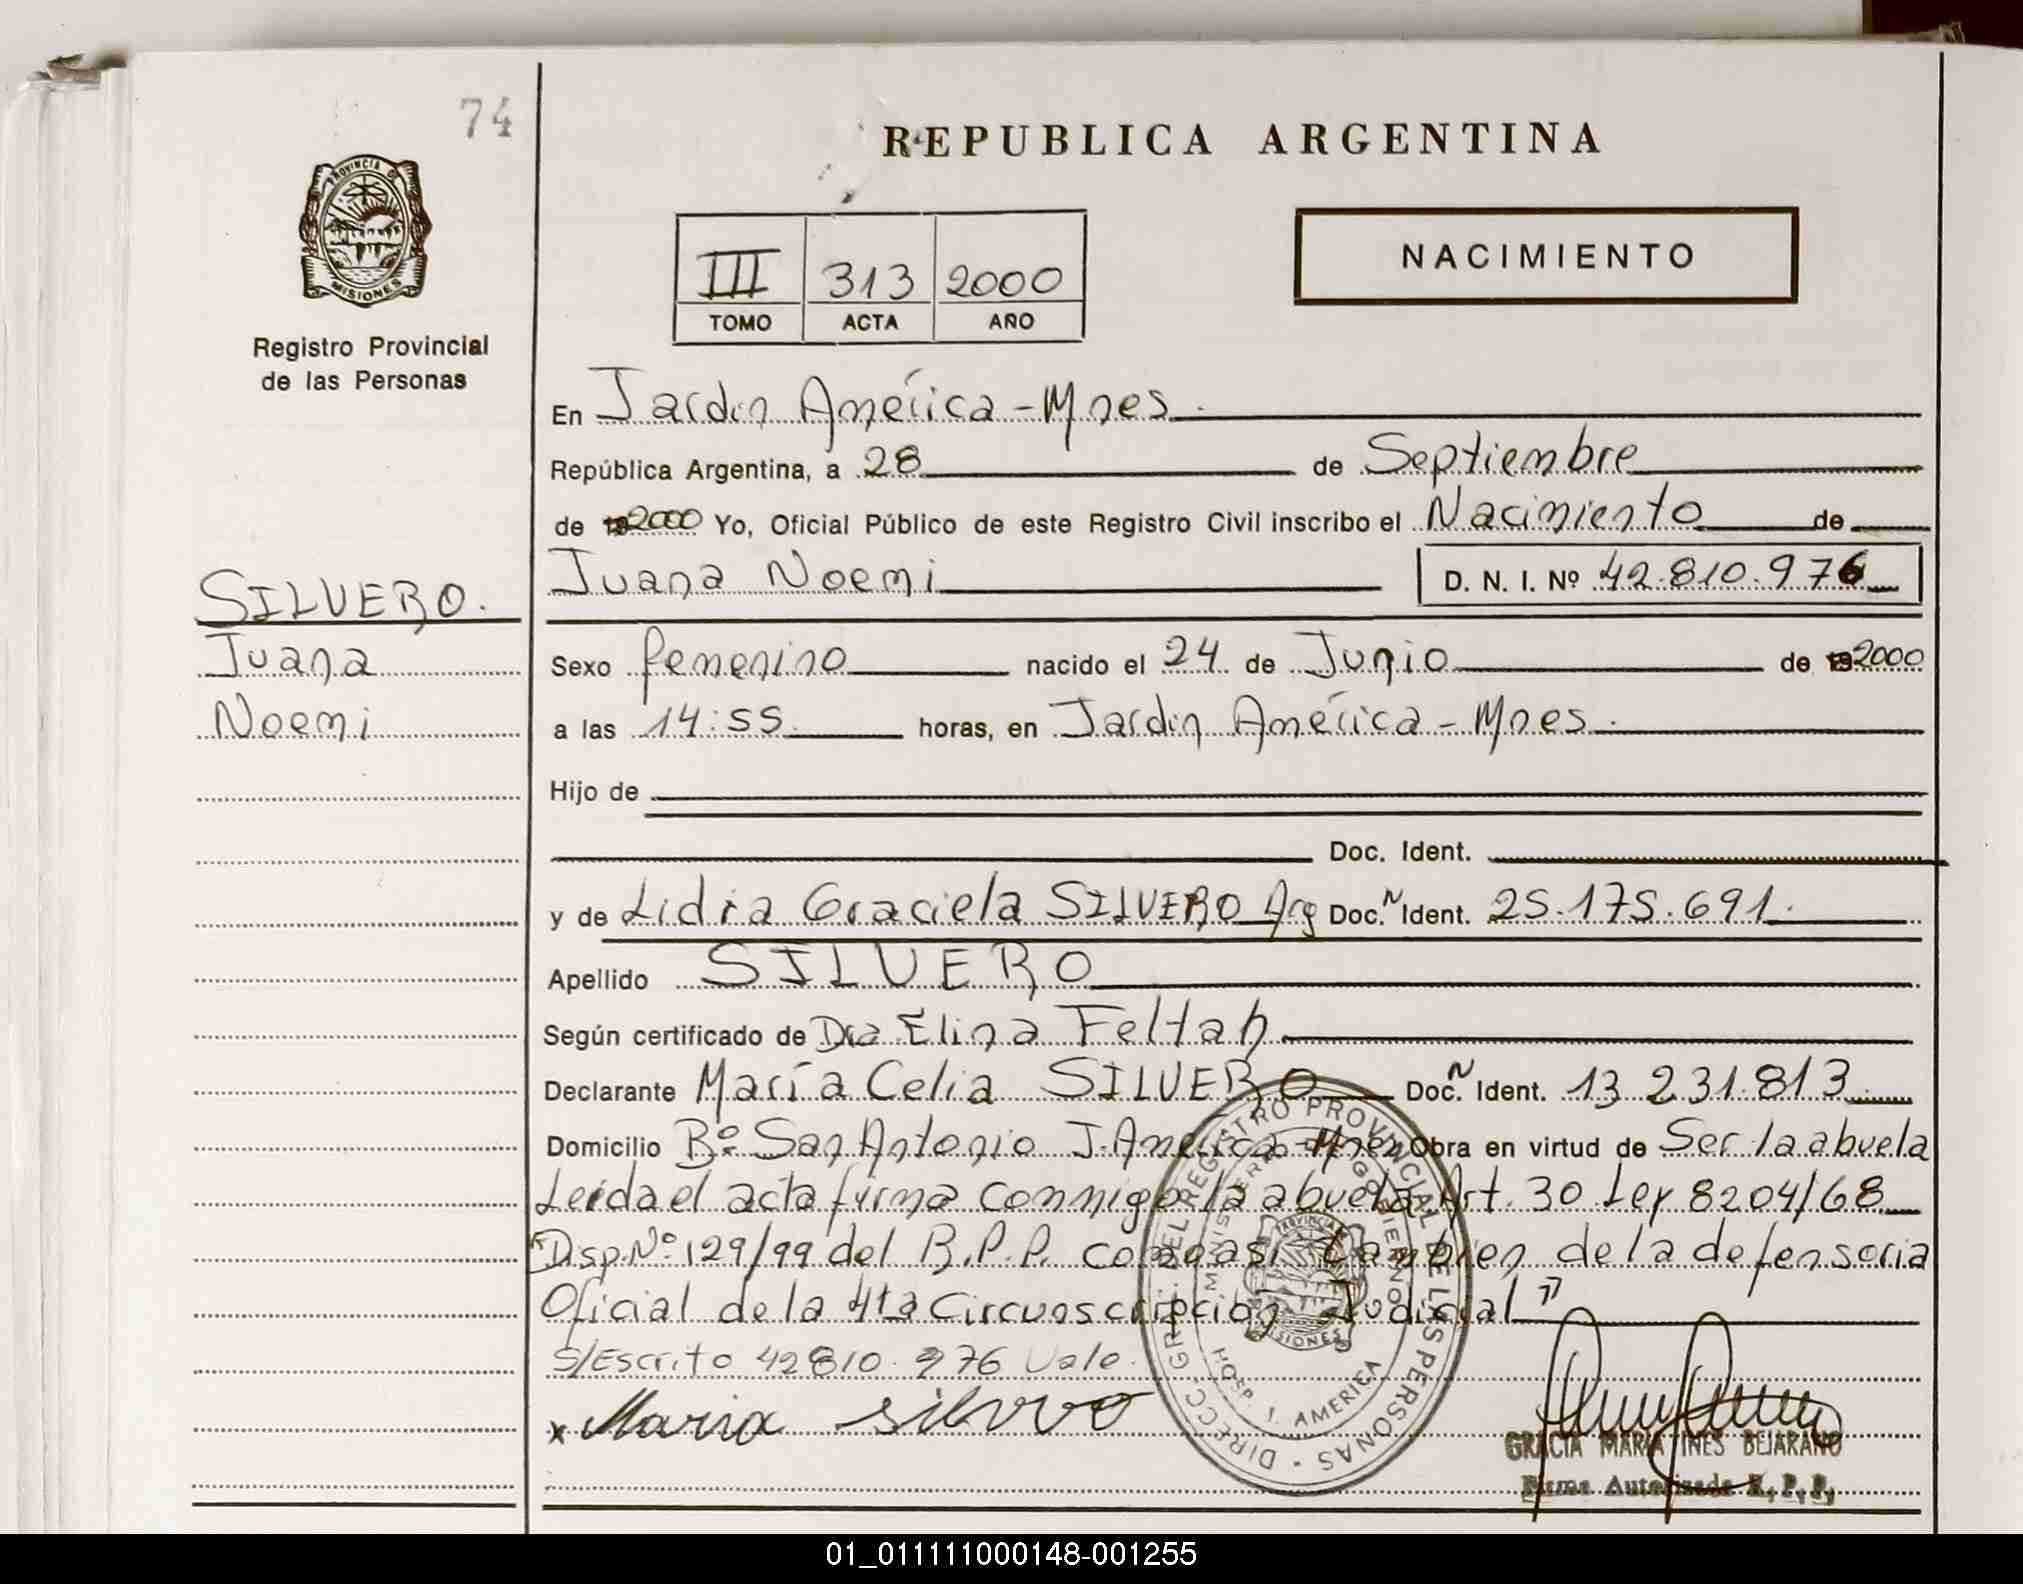 74
REPUBLICA ARGENTINA
PROVINCIA DE
MISIONES
Registro Provincial
de las Personas
III 313 2000
TOMO ACTA AÑO
NACIMIENTO
En Jardin América - Mnes.
República Argentina, a 28 de Septiembre
de 19 2000 Yo, Oficial Público de este Registro Civil inscribo el Nacimiento de
Juana Noemi D. N. I. Nº 42.810.976
SILVERO.
Juana
Noemi
Sexo femenino nacido el 24 de Junio de 19 2000
a las 14:55 horas, en Jardin América - Mnes.
Hijo de
Doc. Ident.
y de Lidia Graciela SILVERO Arg Doc. N Ident. 25.175.691.
Apellido SILVERO
Según certificado de Dra Elina Feltan
Declarante María Celia SILVERO Doc. N Ident. 13.231.813
Domicilio Bº San Antonio J. América - Mnes Obra en virtud de Ser la abuela
Leída el acta firma conmigo la abuela Art. 30 Ley 8204/68
Disp. Nº 129/99 del R.P.P. como asi tambien de la defensoria
Oficial de la 4ta Circunscripción Judicial"
S/Escrito 42810.976 Vale.
x Maria silvero
DIRECC. GRAL. DEL REGISTRO PROVINCIAL DE LAS PERSONAS
MINISTERIO DE GOBIERNO
PROVINCIA
MISIONES
HOSP. J. AMERICA
GRACIA MARIA INES BEJARANO
Firma Autorizada R. P. P.
01_011111000148-001255